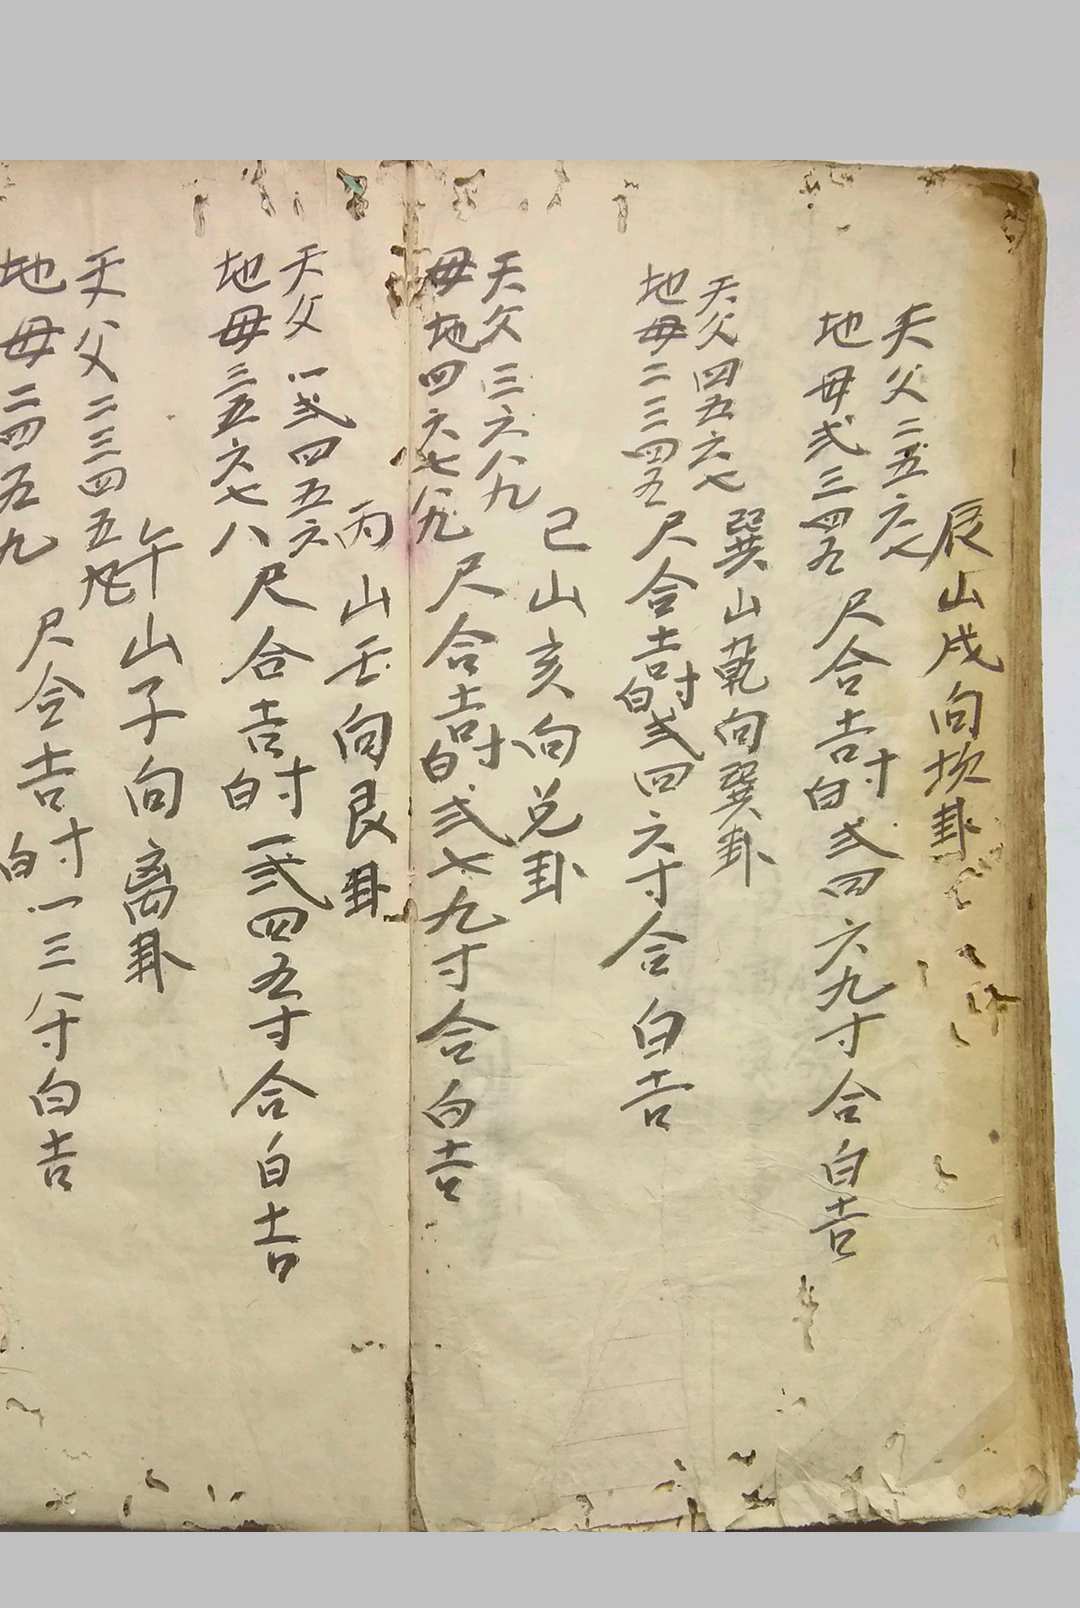 辰山戌向坎卦
天父二五六七
地母弍三四五
尺合吉寸白弍四六九寸合白吉
巽山乾向巽卦
天父四五六七
地母二三四五
尺合吉寸白弍四六寸合白吉
巳山亥向兑卦
天父三六八九
母地四六七八九
尺合吉寸白弍七九寸合白吉
丙山壬向艮卦
天父一弍四五六
地母三五六七八
尺合吉寸白一弍四五寸合白吉
午山子向离卦
天父二三四五九
地母二四五九
尺合吉寸白一三八寸白吉